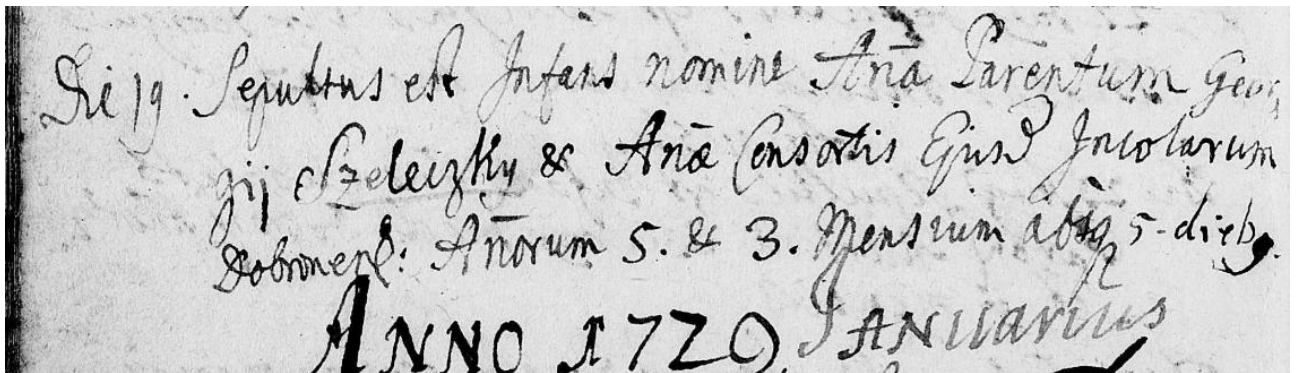 Die 19. Sepultus est Infans nomine Ana Parentum Geor,
gij Szeleczky & Anæ Consortis Ejusd Incolarum
Anorum 5. & 3. Mensium absq 5. dieb9.
ANNO 1720 IANuarius